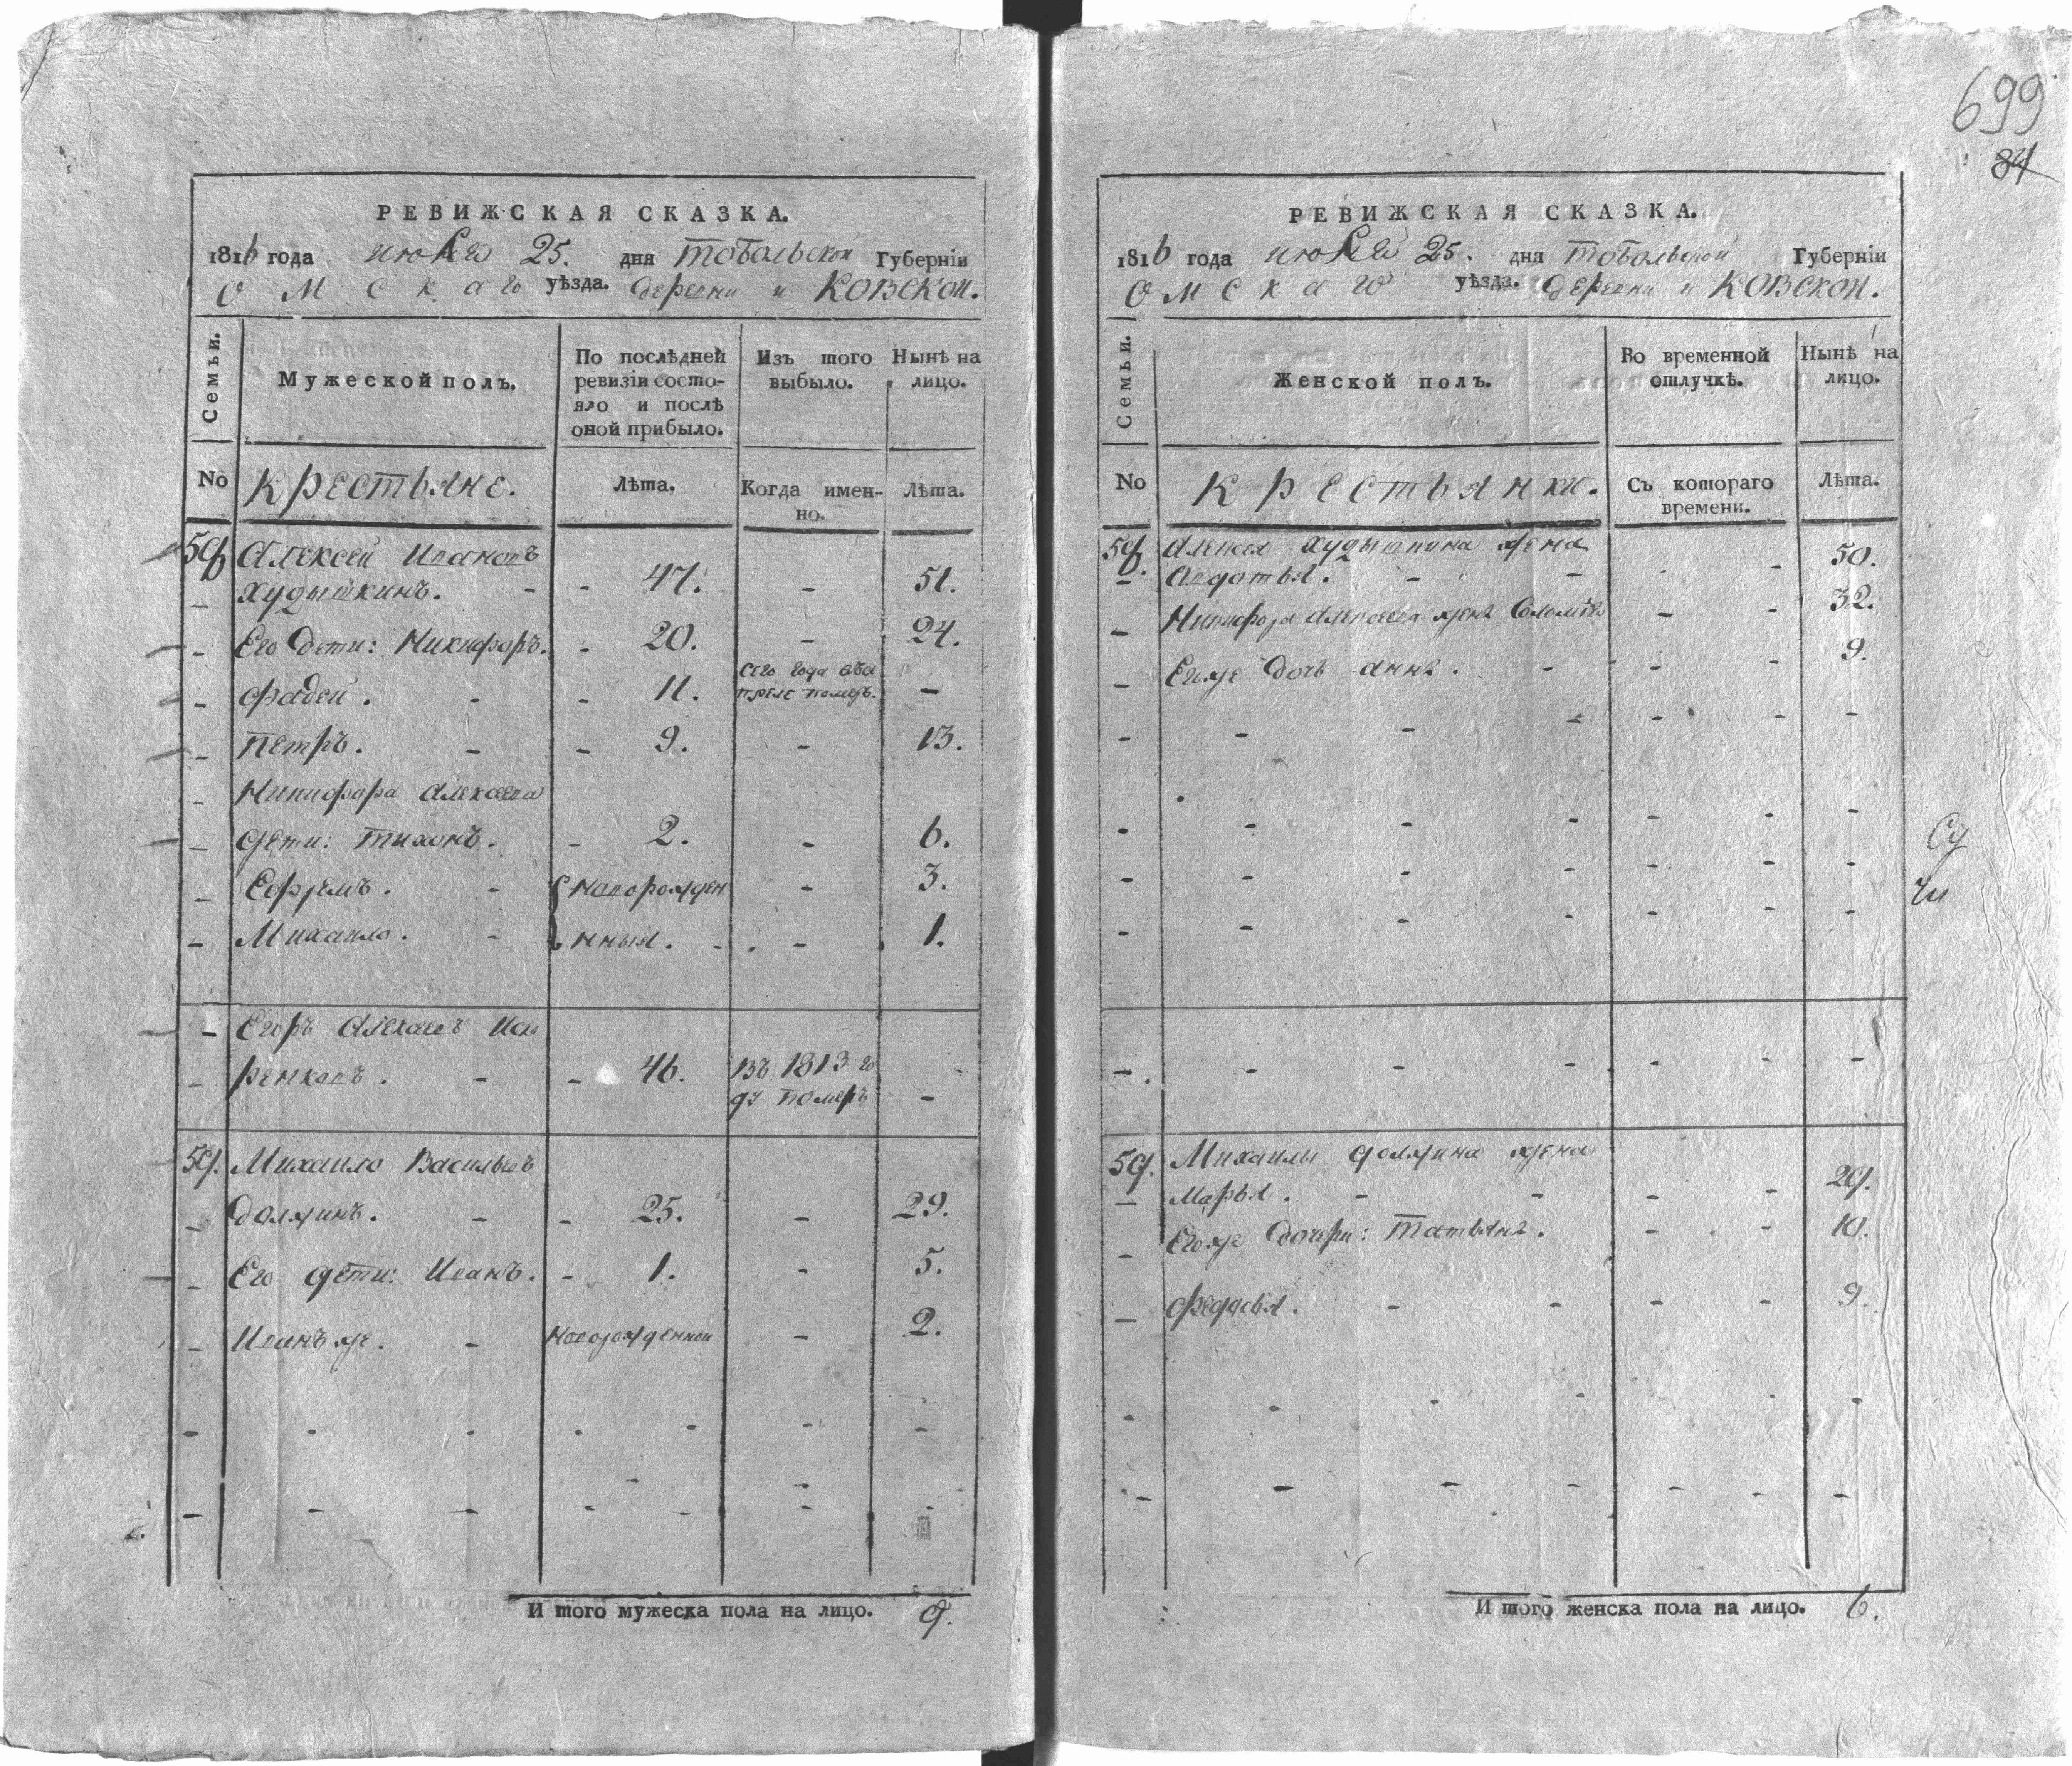 699
84
РЕВИЖСКАЯ СКАЗКА.
1816 года июля 25. дня Тобольской Губерніи
Омскаго уѣзда. деревни Иковской.
Семьи.
Мужеской полъ.
По послѣдней ревизіи состо-
яло и послѣ
оной прибыло.
Изъ того
выбыло.
Нынѣ на
лицо.
No
Крестьяне.
Лѣта.
Когда имен-
но.
Лѣта.
Алексей Ивановъ
Худышкинъ. - - 47. - 51.
Его дети: Никифоръ. - 20. - 24.
Фадей. - - 11. Сего года въ а
преле померъ. -
Петръ. - - 9. - 13.
Никифора Алексеева
дети: Тихонъ. - 2. - 6.
Ефремъ. - новорожден - 3.
Михаило. - нныя. - - 1.
Егоръ Алексеевъ
ренковъ. - - 46. Въ 1813 го
ду померъ -
59. Михаило Васильевъ
Должинъ. - - 25. - 29.
Его дети: Иванъ. - 1. - 5.
Иванъ же. - новорожденной - 2.
И того мужеска пола на лицо. 9.
РЕВИЖСКАЯ СКАЗКА.
1816 года июля 25. дня Тобольской Губерніи
Омскаго уѣзда. деревни Иковской.
Семьи.
Женской полъ.
Во временной
отлучкѣ.
Нынѣ на
лицо.
No
Крестьянки.
Съ котораго
времени.
Лѣта.
Алексея Худышкина жена
Авдотья. - - - 50.
Никифора Алексеева жена - - 32.
Егоже дочь Анна. - - - 9.
59. Михаилы Должина жена
Марья. - - - - 29.
Егоже дочери: Татьяна. - - - 10.
Федосья. - - - - 9.
И того женска пола на лицо. 6.